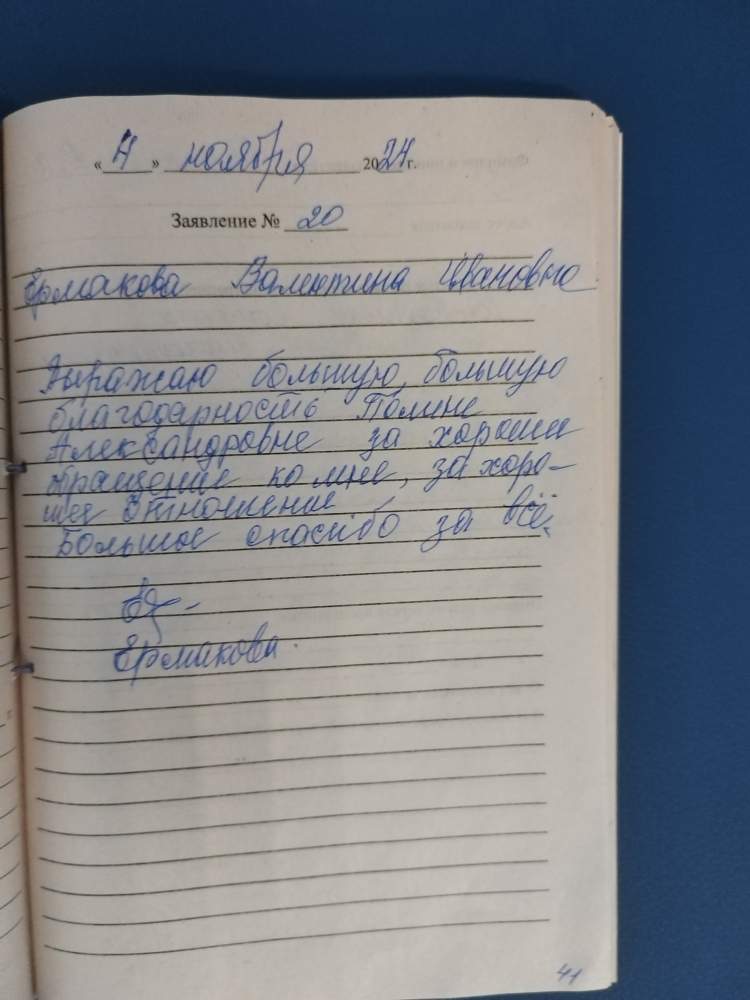 « 4 » ноября 2024 г.
Заявление № 20
Ермакова Валентина Ивановна
Выражаю большую, большую
благодарность Полине
Александровне за хорошее
обращение ко мне, за хоро-
шее отношение
Большое спасибо за всё.
Ермакова.
41